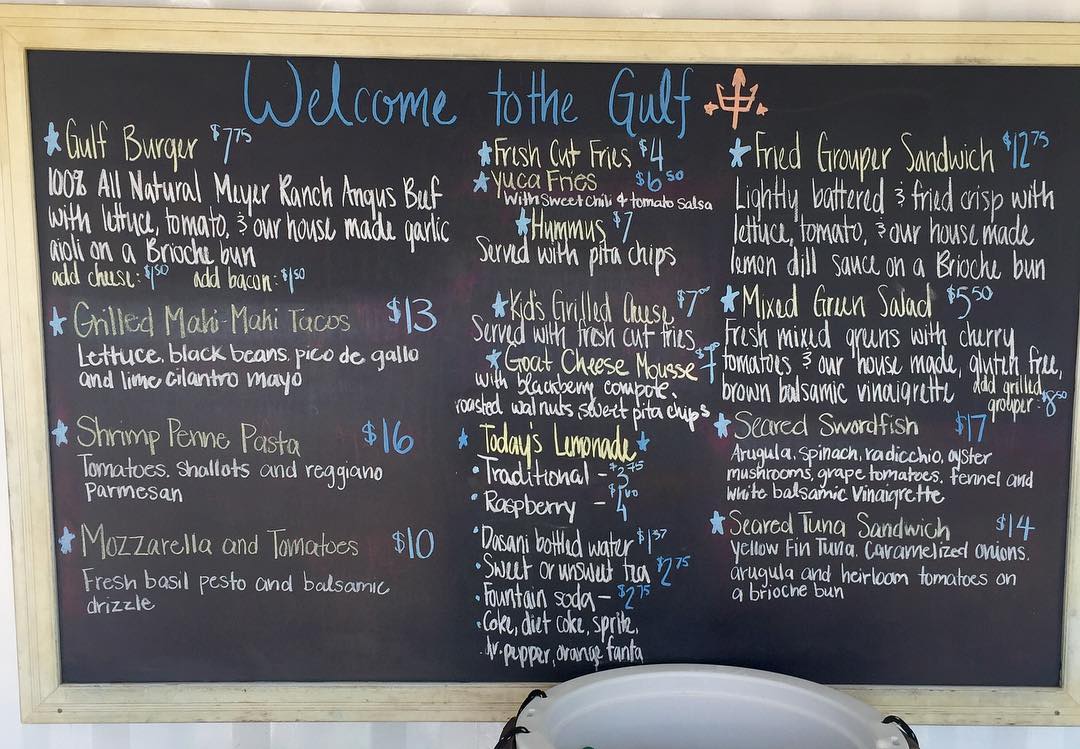 Welcome to the Gulf
Gulf Burger $7.75
100% All Natural Meyer Ranch Angus Beef
with lettuce, tomato, & our house made garlic
aioli on a Brioche bun
add cheese: $1.50 add bacon: $1.50
Grilled Mahi-Mahi Tacos $13
Lettuce, black beans, pico de gallo
and lime cilantro mayo
Shrimp Penne Pasta $16
Tomatoes, shallots and reggiano
parmesan
Mozzarella and Tomatoes $10
Fresh basil pesto and balsamic
drizzle
Fresh Cut Fries $4
Yuca Fries $6.50
with sweet chili & tomato salsa
Hummus $7
Served with pita chips
Kid's Grilled Cheese $7
Served with fresh cut fries
Goat Cheese Mousse $7
with blackberry compote,
roasted walnuts sweet pita chips
Today's Lemonade
Traditional - $3.75
Raspberry -
Dasani bottled water $1.37
Sweet or unsweet tea $2.75
Fountain soda - $2.75
Coke, diet coke, sprite,
dr. pepper, orange fanta
Fried Grouper Sandwich $12.75
Lightly battered & fried crisp with
lettuce, tomato, & our house made
lemon dill sauce on a Brioche bun
Mixed Green Salad $5.50
Fresh mixed greens with cherry
tomatoes & our house made, gluten free,
brown balsamic vinaigrette add grilled
grouper: $8.50
Seared Swordfish $17
Arugula, spinach, radicchio, oyster
mushrooms, grape tomatoes, fennel and
white balsamic vinaigrette
Seared Tuna Sandwich $14
yellow Fin Tuna, Caramelized onions,
arugula and heirloom tomatoes on
a brioche bun